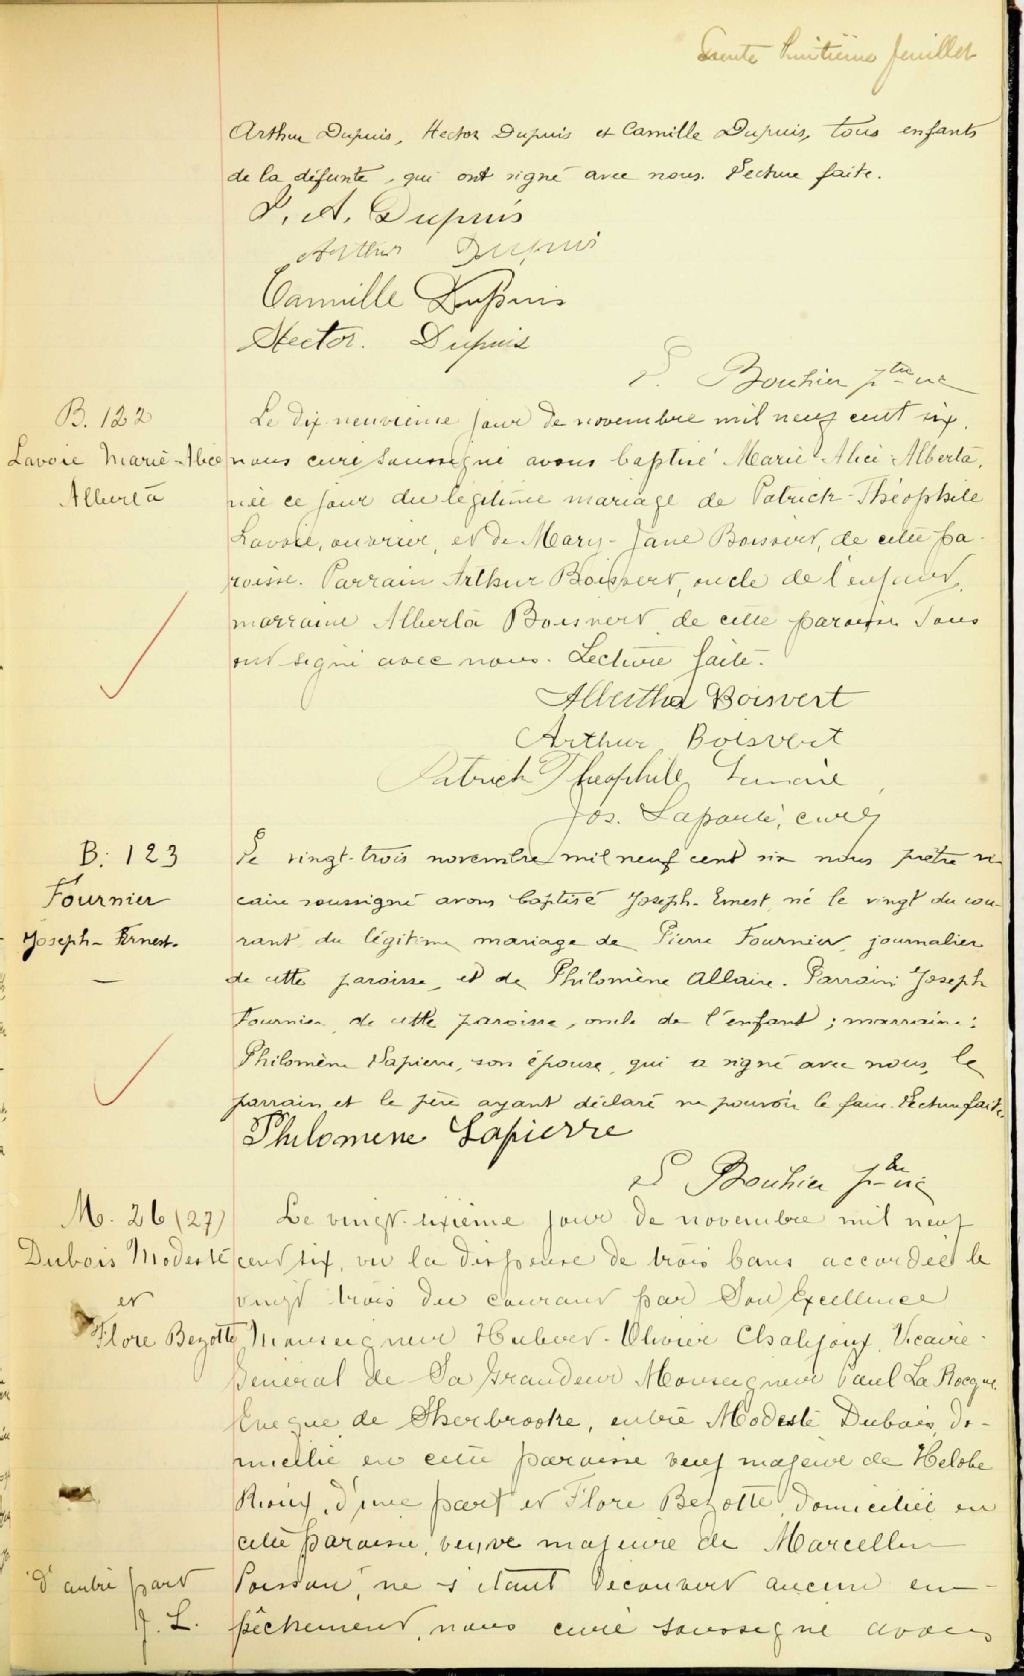 Trente huitième feuillet
Arthur Dupuis, Hector Dupuis et Camille Dupuis, tous enfants
de la défunte, qui ont signé avec nous. Lecture faite.
J. A. Dupuis
Arthur Dupuis
Camille Dupuis
Hector. Dupuis
E. Bouhier ptre vic
B. 122
Lavoie Marie-Alice
Alberta
Le dix neuvième jour de novembre mil neuf cent six,
nous curé soussigné avons baptisé Marie Alice Alberta,
née ce jour du légitime mariage de Patrick-Théophile
Lavoie, ouvrier, et de Mary-Jane Boisvert, de cette pa-
roisse. Parrain Arthur Boisvert, oncle de l'enfant,
marraine Alberta Boisvert de cette paroisse. Tous
ont signé avec nous. Lecture faite.
Albertha Boisvert
Arthur Boisvert
Patrick Theophile
Jos. Laporte, curé
B. 123
Fournier
Joseph-Ernest.
Le vingt-trois novembre mil neuf cent six nous prêtre vi-
caire soussigné avons baptisé Joseph-Ernest, né le vingt du cou-
rant, du légitime mariage de Pierre Fournier, journalier
de cette paroisse, et de Philomène Allaire. Parrain: Joseph
Fournier, de cette paroisse, oncle de l'enfant; marraine:
Philomène Lapierre, son épouse, qui a signé avec nous, le
parrain et le père ayant déclaré ne pouvoir le faire. Lecture faite.
Philomene Lapierre
E Bouhier ptre vic
M. 26 (27)
Dubois Modeste
et
Flore Bezotte
Le vingt-sixième jour de novembre mil neuf
cent six, vu la dispense de trois bans accordée le
vingt trois du courant par Son Excellence
Monseigneur Hubert-Olivier Chalifoux, Vicaire-
Général de Sa Grandeur Monseigneur Paul La Rocque
Evêque de Sherbrooke, entre Modeste Dubois, do-
micilié en cette paroisse veuf majeur de
Rioux, d'une part et Flore Bezotte, domiciliée en
cette paroisse, veuve majeure de Marcellin
Poisson, ne s'étant découvert aucun em-
pêchement, nous curé soussigné avons
d'autre part
J. L.